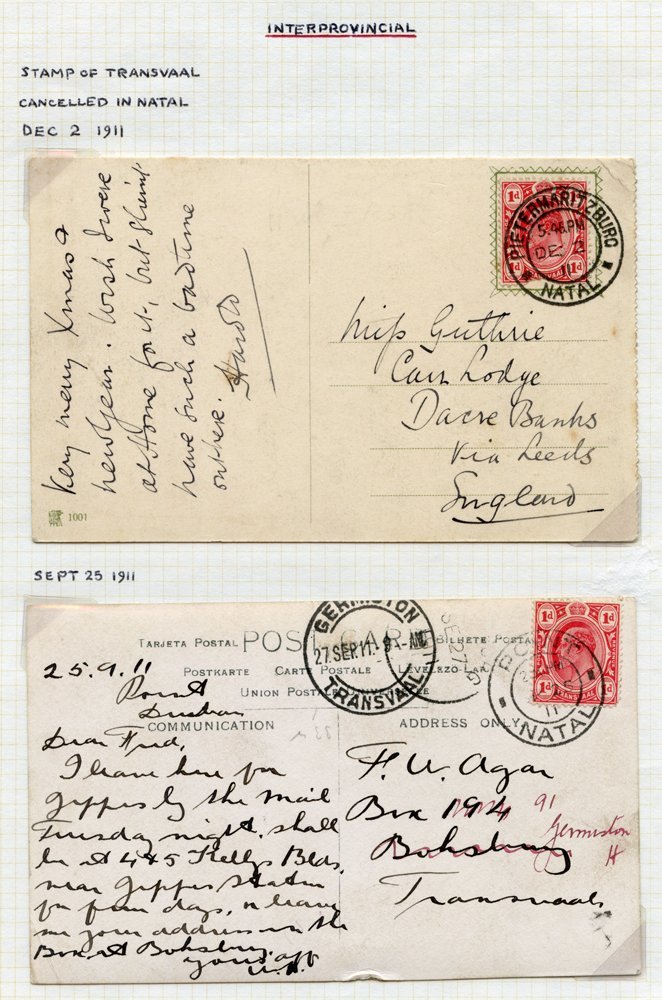 INTERPROVINCIAL
STAMP OF TRANSVAAL
CANCELLED IN NATAL
DEC 2 1911
Very merry Xmas &
new Year. Wish I were
at Home for it, but
have such a bad time
out here. Harold
1001
1d 1d
PIETERMARITZBURG
5.46.PM
DEC 2
11
NATAL
Miss Guthrie
Carr Lodge
Dacre Banks
Via Leeds
England
SEPT 25 1911
TARJETA POSTAL POST CARD BILHETE POSTAL
POSTKARTE CARTE POSTALE LEVELEZÖ-LAP
UNION POSTALE UNIVERSELLE
COMMUNICATION
ADDRESS ONLY
GERMISTON
27.SEP.11. 9-AM
TRANSVAAL
1d 1d
1d 1d
TRANSVAAL
POINT
11
NATAL
25.9.11
Point
Durban
Dear Fred,
I leave here for
Jeppes by the mail
Tuesday night. shall
be at 445 Kellys Blds.
near Jeppes Station
for four days, or leave
me your address in the
Box at Boksburg.
yours aff
F. W. Agar
Box 194
Boksburg
Transvaal
91
Germiston